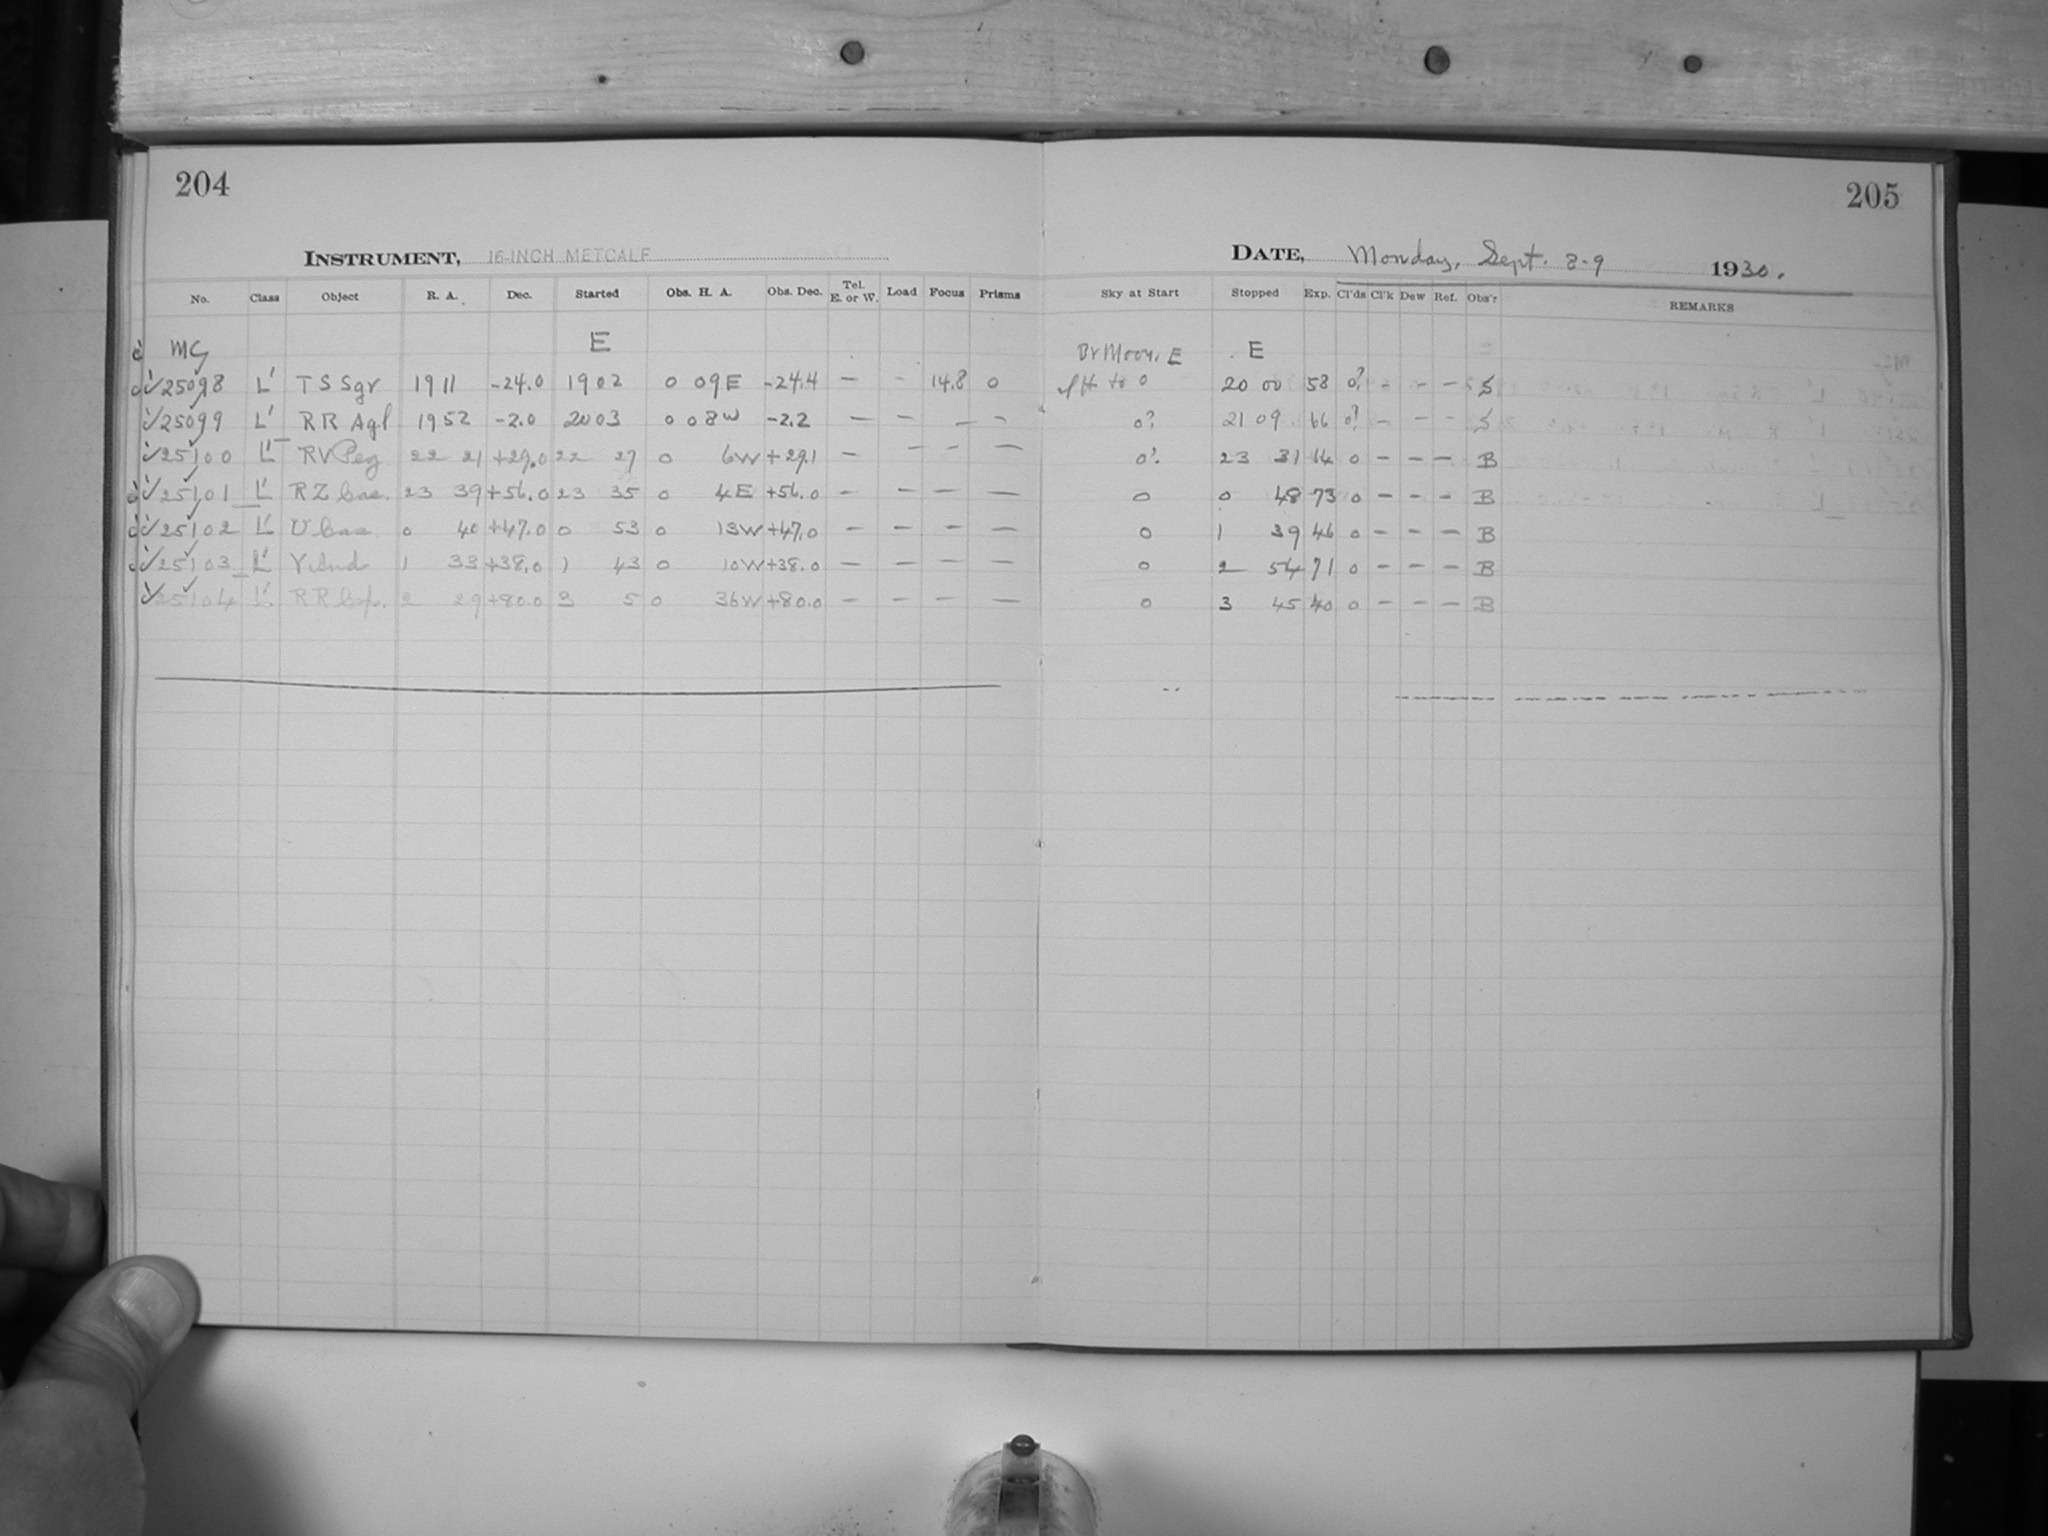 204
205
INSTRUMENT, 16-INCH METCALF
DATE, Monday, Sept. 8-9 1930.
No. Class Object R. A. Dec. Started Obs. H. A. Obs. Dec. Tel. E. or W. Load Focus Prisms Sky at Start Stopped Exp. Cl'ds Cl'k Dew Ref. Obs'r REMARKS
MC E Br Moon, E E
25098 L' TS Sgr 19 11 -24.0 19 02 0 09E -24.4 — - 14.8 0 to 0 20 00 58 0? - - - S
25099 L' RR Aql 19 52 -2.0 20 03 0 08W -2.2 — — — - 0? 21 09 66 0? - - - S
25100 L' RV Peg 22 21 +29.0 22 27 0 6W +29.1 — - - — 0? 23 31 64 0 - - - B
25101 L' RZ Cas. 23 39 +56.0 23 35 0 4E +56.0 — — — — 0 0 48 73 0 - - - B
25102 L' U Cas. 0 40 +47.0 0 53 0 13W +47.0 — — — — 0 1 39 46 0 - - - B
25103 L' Y And 1 33 +38.0 1 43 0 10W +38.0 — — — — 0 2 54 71 0 - - - B
25104 L' RR Cep. 2 29 +80.0 3 5 0 36W +80.0 — — — — 0 3 45 40 0 - - - B